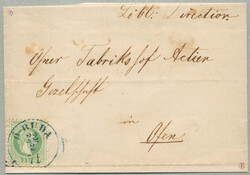 Löbl. Direction
Ofner Fabrikshof Actien
Gesellschaft
in
Ofen
Ó-BUDA